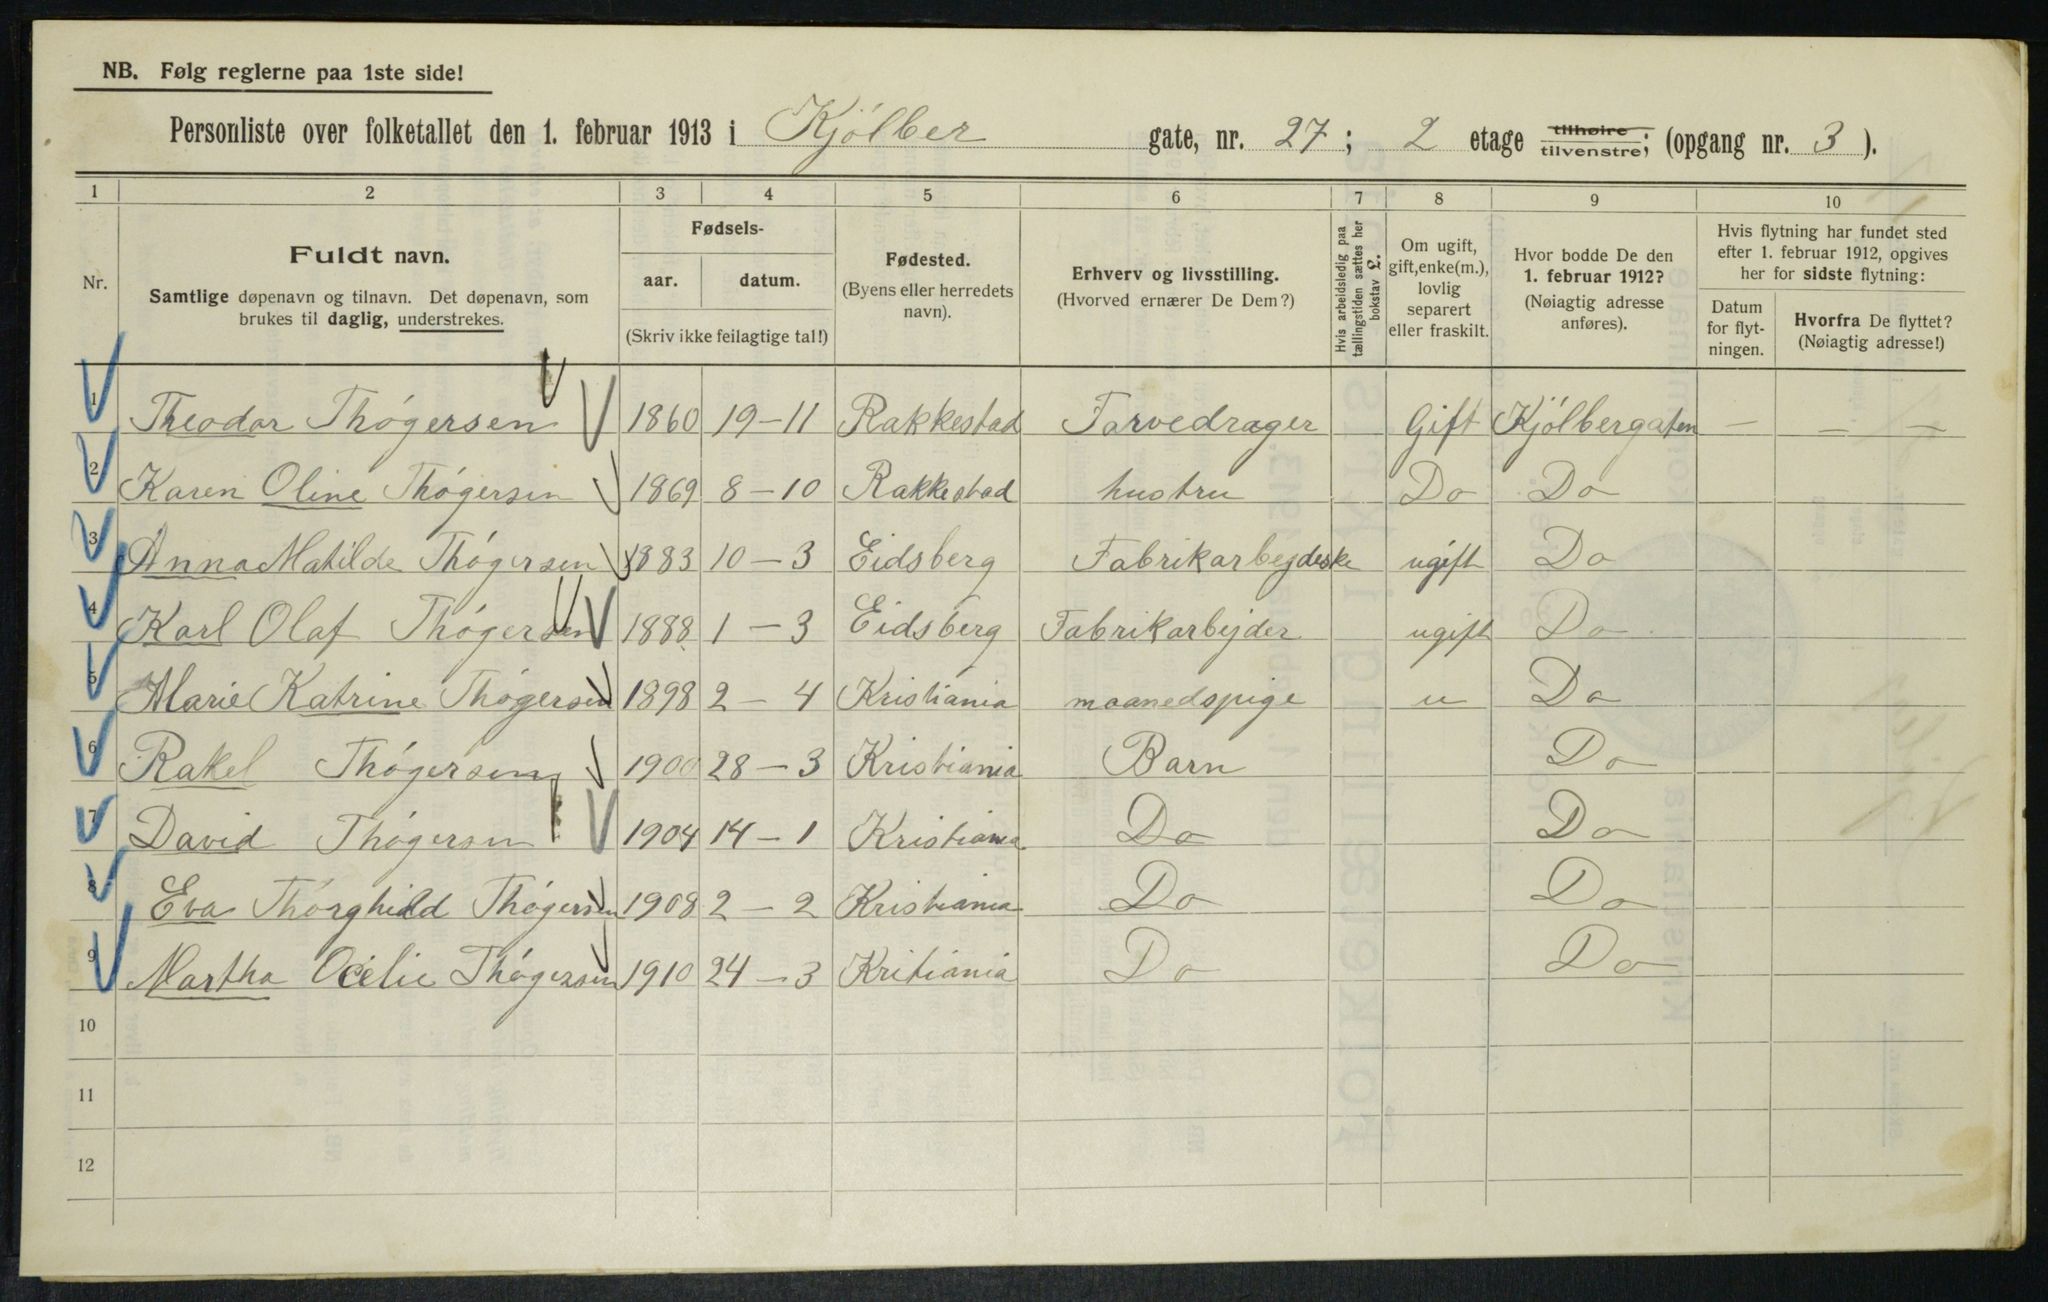 NB. Følg reglerne paa 1ste side!
Personliste over folketallet den 1. februar 1913 i Kjólber gate, nr. 27; 2 etage tilhøire tilvenstre; (opgang nr. 3).
1 2 3 4 5 6 7 8 9 10
Nr.
Fuldt navn.
Samtlige døpenavn og tilnavn. Det døpenavn, som
brukes til daglig, understrekes.
Fødsels-
aar. datum.
(Skriv ikke feilagtige tal!)
Fødested.
(Byens eller herredets
navn).
Erhverv og livsstilling.
(Hvorved ernærer De Dem?)
Hvis arbeidsledig paa
tællingstiden sættes her
bokstav L.
Om ugift,
gift, enke(m.),
lovlig
separert
eller fraskilt.
Hvor bodde De den
1. februar 1912?
(Nøiagtig adresse
anføres).
Hvis flytning har fundet sted
efter 1. februar 1912, opgives
her for sidste flytning:
Datum
for flyt-
ningen.
Hvorfra De flyttet?
(Nøiagtig adresse!)
1 Theodor Thógersen 1860 19-11 Rakkestad Farvedrager Gift Kjólbergaten — — —
2 Karen Oline Thógersen 1869 8-10 Rakkestad hustru Do Do
3 Anna Matilde Thógersen 1883 10-3 Eidsberg Fabrikarbejdeske ugift Do
4 Karl Olaf Thógersen 1888 1-3 Eidsberg Fabrikarbejder ugift Do
5 Marie Katrine Thógersen 1898 2-4 Kristiania maanedspige u Do
6 Rakel Thógersen 1900 28-3 Kristiania Barn Do
7 David Thógersen 1904 14-1 Kristiania Do Do
8 Eva Thórghild Thógersen 1908 2-2 Kristiania Do Do
9 Martha Thógersen 1910 24-3 Kritiania Do Do
10
11
12